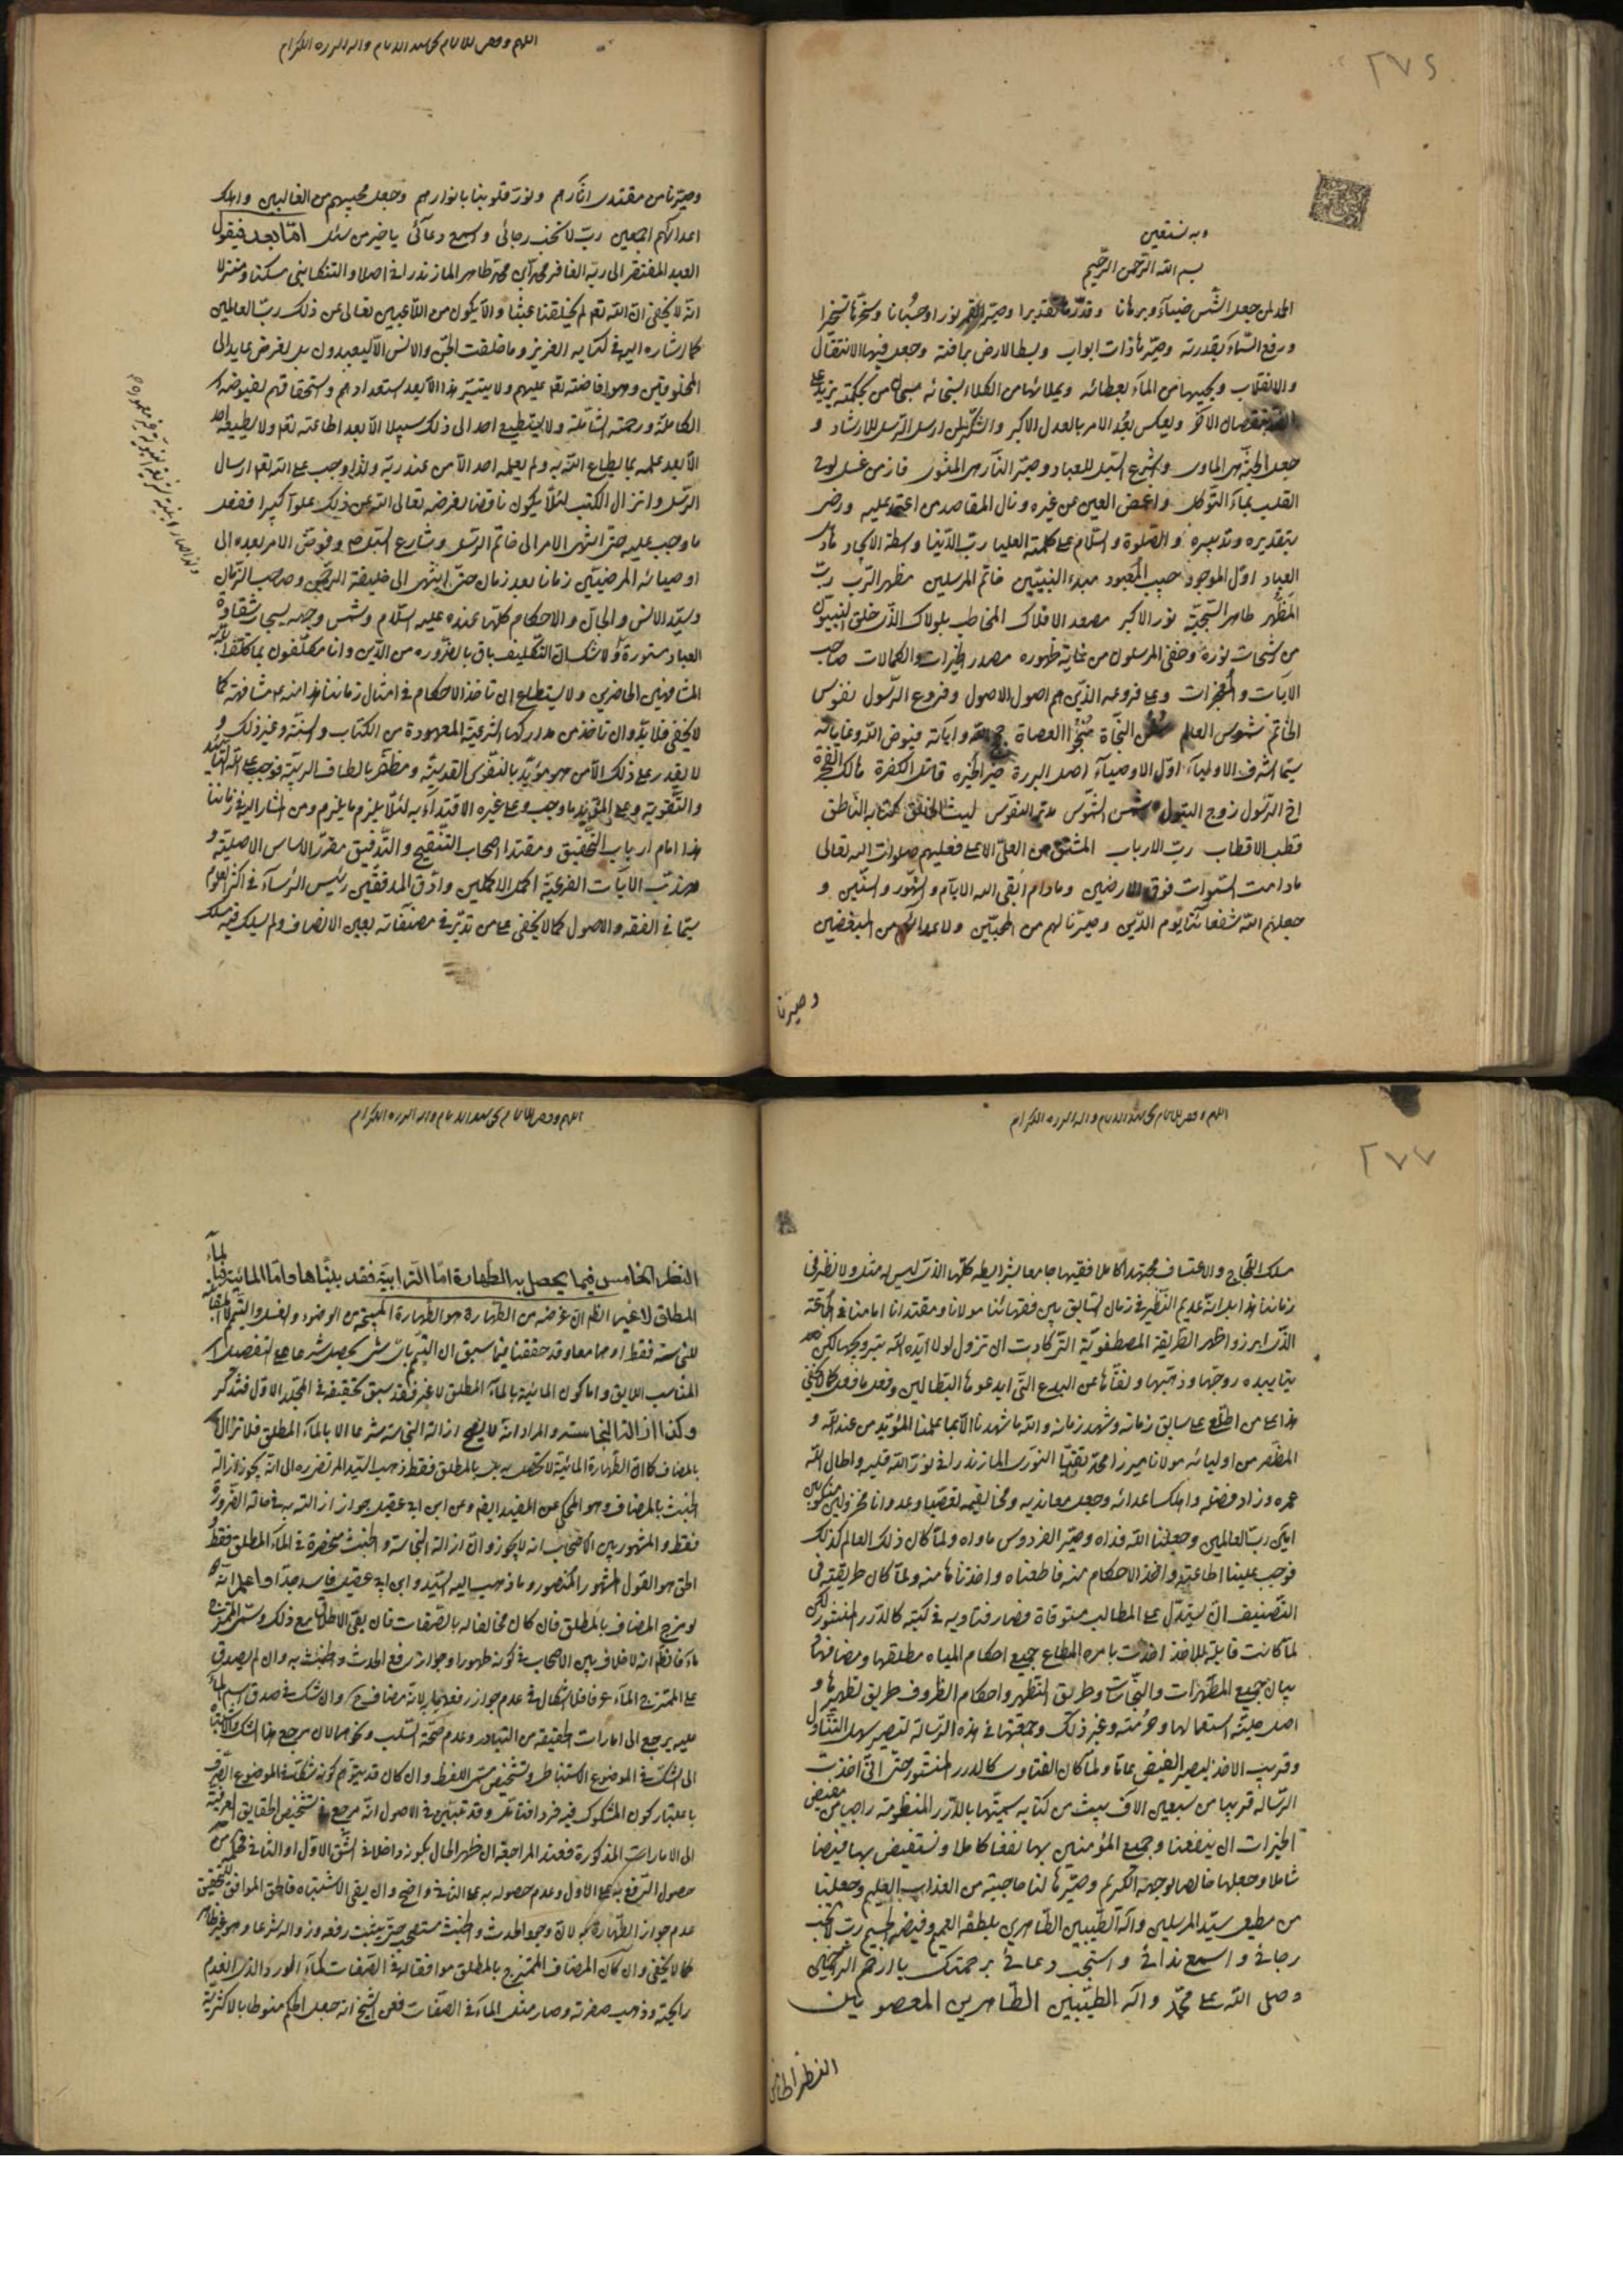 ٢٧٦
وبه نستعين
بسم الله الرحمن الرحيم
الحمد لمن جعل الشمس ضيآء وبرهانا وقدرها تقديرا وصير القمر نورا وحسبانا وسخرها تسخيرا
ورفع السمآء بقدرته وصيرها ذات ابواب وبسط الارض برافته وجعل فيها الانتقال
والانقلاب ويحييها من المآء بعطائه ويملائها من الكلاء بسخائه سبحان من بحكمته يزيد
بنقصان الآخر ويعكس بعد الامر بالعدل الاكبر والشكر لمن ارسل الرسل للارشاد و
جعل الجنة هى الماوى واشرع السبل للعباد وصير النار هى المثوى فاز من غسل لوح
القلب بمآء التوكل واغمض العين عن غيره ونال المقاصد من اعتمد عليه ورضى
بتقديره وتدبيره والصلوة والسلام على كلمته العليا رب الدنيا واسطة الايجاد هادى
العباد اول الموجود حبيب المعبود مبدء النبيين خاتم المرسلين مظهر الرب رب
المظهر طاهر السجية نور الاكبر مصعد الافلاك المخاطب بلولاك الذى خلق النبيون
من رشحات نوره وخفى المرسلون من غاية ظهوره مصدر الخيرات والكمالات صاحب
الآيات والمعجزات وعلى فروعه الذين هم اصول الاصول وفروع الرسول نفوس
الخاتم شموس العالم سفن النجاة منجوا العصاة حجج الله وآياته فيوض الله وغاياته
سيما اشرف الاوليآء اول الاوصيآء اصل البررة خير الخيره قاتل الكفرة مالك
اخ الرسول زوج البتول شمس الشموس مدبر النفوس ليث الخالق كتابه الناطق
قطب الاقطاب رب الارباب المشتق من العلى الاعلى فعليهم صلوات الله تعالى
مادامت السموات فوق الارضين ومادام ابقى الله الايام والشهور والسنين و
جعلهم الله شفعائنا يوم الدين وصيرنا لهم من المحبين ولاعدائهم من المبغضين
وصيرنا
وصيرنا من مقتدى آثارهم ونور قلوبنا بانوارهم وجعل محبيهم من الغالبين واهلك
اعدائهم اجمعين رب لا تخيب رجائى واسمع دعآئى يا خير من سئل امّا بعد فيقول
العبد المفتقر الى ربه الغافر محمد طاهر المازندرانى اصلا والتنكابنى مسكنا ومنزلا
انه لا يخفى ان الله تعالى لم يخلقنا عبثا والا يكون من اللاعبين تعالى عن ذلك رب العالمين
كما اشار اليه فى كتابه العزيز وما خلقت الجن والانس الا ليعبدون بل لغرض عايد الى
المخلوقين وهو افاضته تعالى عليهم ولا يتيسر هذا الا بعد استعدادهم واستحقاقهم لفيوضه
الكاملة ورحمته الشاملة ولا يستطيع احد الى ذلك سبيلا الا بعد اطاعته تعالى ولا يطيعه احد
الا بعد علمه بما يطاع الله به ولم يعلمه احد الا من عند ربه ولذا وجب على الله تعالى ارسال
الرسل وانزال الكتب لئلا يكون ناقضا لغرضه تعالى الله عن ذلك علوا كبيرا ففعل
ما وجب عليه حتى انتهى الامر الى خاتم الرسل وشارع السبل وفوض الامر بعده الى
اوصيائه المرضيين زمانا بعد زمان حتى انتهى الى خليفة الرحمن وصاحب الزمان
وسيد الانس والجان والاحكام كلها عنده عليه السلام وشمس وجهه بسحاب شقاوة
العباد مستورة ولا شك ان التكليف باق بالضرورة من الدين وانا مكلفون بما كلف
المشافهين الحاضرين ولا يستطاع ان تاخذ الاحكام فى امثال زماننا هذا منه مشافهة كما
لا يخفى فلا بد وان تاخذ من مداركها الشرعية المعهودة من الكتاب والسنة وغير ذلك و
لا يقدر على ذلك الا من هو مؤيد بالنفوس القدسية ومظفر بالطاف الربية فوجب على الله التاييد
والتقوية وعلى المؤيد ما وجب وعلى غيره الاقتدآء به لئلا يلزم ما يلزم ومن المشار اليه فى زماننا
هذا امام ارباب التحقيق ومقتدا اصحاب التنقيح والتدقيق مقرر الاساس الاصلية و
مهذب الآيات الفرعية اكمل الاكملين وادق المدققين رئيس الرؤساء فى اكثر العلوم
سيما فى الفقه والاصول كما لا يخفى على من تدبر فى مصنفاته بعين الانصاف ولم يسلك فيه مسلك
٢٧٧
مسلك اللجاج والاعتساف مجتهدا كاملا فقيها جامعا لشرايطه كلها الذى ليس له مثل ولا نظير فى
زماننا هذا بل انه عديم النظير فى زمان السابق بين فقهائنا مولانا ومقتدانا امامنا فى
الذى ابرز واظهر الطريقة المصطفوية التى كادت ان تزول لولا ايده الله بترويجها لكن
بتاييده روجها وذهبها ونفاها عن البدع التى ابدعوها البطالين وفعل ما فعل كما لا يخفى
هذا على من اطلع على سابق زمانه وشهد زمانه والله ما شهدنا الا بما علمنا المؤيد من عند الله و
المظفر من اوليائه مولانا ميرزا محمد تقى النورى المازندرانى نور الله قلبه واطال الله
عمره وزاد فضله واهلك اعدائه وجعل معانديه ومخالفيه تعصبا وعدوانا مخذولين منكوبين
امين رب العالمين وجعلنا الله فداه وصير الفردوس ماواه ولما كان ذلك العالم كذلك
فوجب علينا اطاعته واخذ الاحكام منه فاطعناه واخذناها منه ولما كان طريقته فى
التصنيف ان يستدل على المطالب مستوفاة فصار فتاويه فى كتبه كالدرر المنثور لكن
لما كانت قابلة للاخذ اخذت بامره المطاع جميع احكام المياه مطلقها ومضافها و
بيان جميع المطهرات والنجاسات وطريق التطهر واحكام الظروف طريق تطهيرها و
اصل حلية استعمالها وحرمته وغير ذلك وجمعتها فى هذه الرسالة لتصير سهل التناول
وقريب الاخذ ليصير الفيض عاما ولما كان الفتاوى كالدرر المنثور حتى انى اخذت
الرسالة قريبا من سبعين الاف بيت من كتابه سميتها بالدرر المنظومة راجيا من مفيض
الخيرات ان ينفعنا وجميع المؤمنين بها نفعا كاملا ونستفيض بها فيضا
شاملا وجعلها خالصا لوجهه الكريم وصيرها لنا جنة من العذاب الاليم وجعلنا
من مطيعى سيد المرسلين وآله الطيبين الطاهرين بلطفه العميم وفيضه الجسيم رب لا تخيب
رجائى واسمع ندائى واستجب دعائى برحمتك يا ارحم الراحمين
وصلى الله على محمد وآله الطيبين الطاهرين المعصومين
النظر الخامس
النظر الخامس فيما يحصل به الطهارة امّا الترابية فقد بيناها وامّا المائية فبالمآء
المطلق لا غير الظاهر ان غرضه من الطهارة هو الطهارة المبيحة من الوضوء والغسل والتيمم
للنجاسة فقط او هما معا وقد حققنا فيما سبق ان التيمم باى شىء يحصل شرعا على التفصيل
المناسب اللايق واما كون المائية بالمآء المطلق لا غير فقد سبق تحقيقه فى المجلد الاول فتذكر
وكذا ازالة النجاسة والمراد انه لا يصح ازالة النجاسة شرعا الا بالمآء المطلق فلا تزال
بالمضاف كما ان الطهارة المائية لا تحصل به بل بالمطلق فقط ذهب السيد المرتضى ره الى انه يجوز ازالة
الخبث بالمضاف وهو المحكى عن المفيد ايضا وعن ابن ابى عقيل جواز ازالته به فى حالة الضرورة
فقط والمشهور بين الاصحاب انه لا يجوز وان ازالة النجاسة والخبث منحصرة فى المآء المطلق فقط و
الحق هو القول المشهور المنصور وما ذهب اليه السيد وابن ابى عقيل فاسد جدا واعلم انه
لو مزج المضاف بالمطلق فان كان مخالفا له بالصفات فان بقى الاطلاق مع ذلك وسمى الممتزج
مآء فالظاهر انه لا خلاف بين الاصحاب فى كونه طهورا وجواز رفع الحدث والخبث به وان لم يصدق
على الممتزج المآء عرفا فلا اشكال فى عدم جواز رفعهما به لانه مضاف ح وان شك فى صدق اسم المآء
عليه يرجع الى امارات الحقيقة من التبادر وعدم صحة السلب ونحوهما لان مرجع هذا الشك
الى الشك فى الموضوع الاستنباطى وتشخيص مسمى اللفظ وان كان قد يتوهم كونه شكا فى الموضوع الصرف
باعتبار كون المشكوك فيه فردا فتامل وقد تبين فى الاصول انه مرجع فى تشخيص الحقايق العرفية
الى الامارات المذكورة فعند المراجعة ان ظهر الحال بكونه داخلا فى الشق الاول او الثانى فحكمه من
حصول الرفع به على الاول وعدم حصوله به على الثانى واضح وان بقى الاشتباه فالحق الموافق للتحقيق
عدم جواز الطهارة به لان وجود الحدث والخبث مستصحب حتى يثبت رفعه وزواله شرعا وهو
كما لا يخفى وان كان المضاف الممتزج بالمطلق موافقا له فى الصفات كمآء الورد الذى انعدم
رايحته وذهب صفرته وصار مثل المآء فى الصفات فعن الشيخ انه جعل الحكم منوطا بالاكثرية